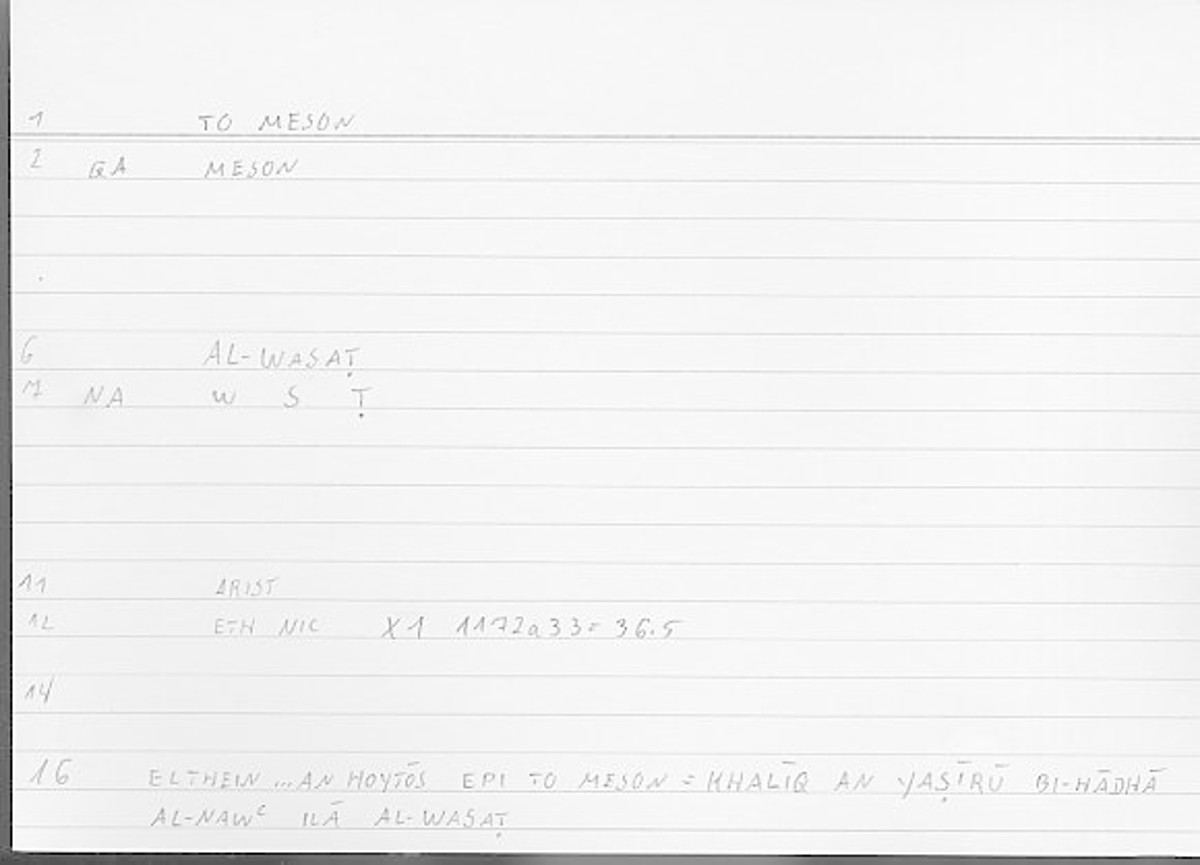 1 TO MESON
2 QA MESON
6 AL-WASAṬ
7 NA W S Ṭ
11 ARIST
12 ETH NIC X1 1172a33 = 36.5
14
16 ELTHEIN ... AN HOYTŌS EPI TO MESON = KHALĪQ AN YAṢĪRŪ BI-HĀDHĀ
AL-NAWᶜ ILĀ AL-WASAṬ